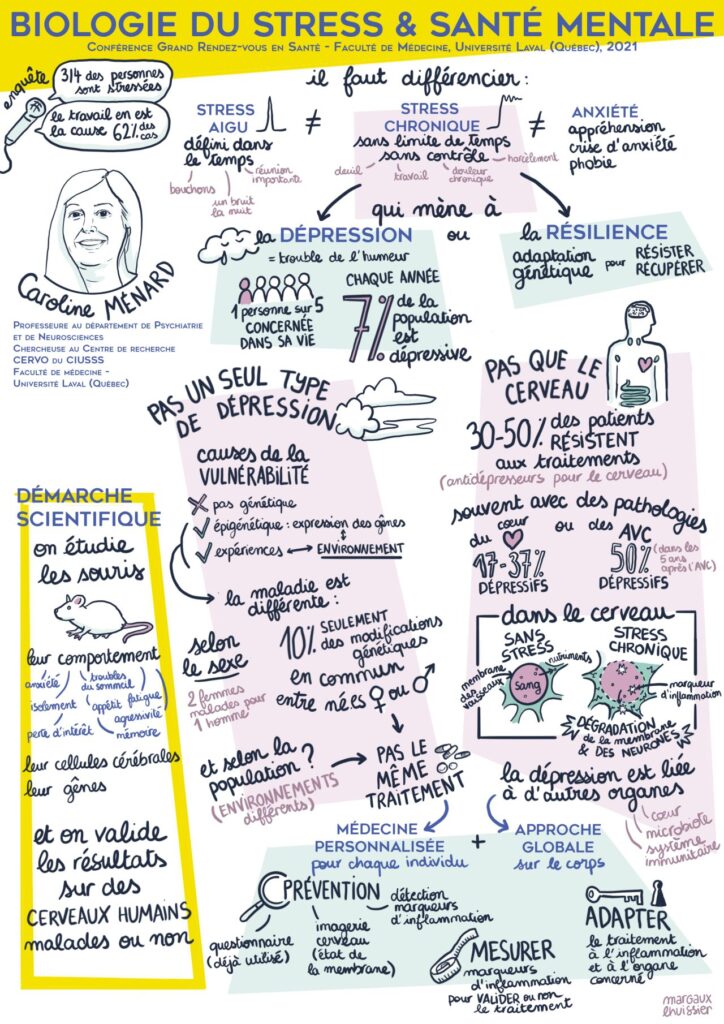 BIOLOGIE DU STRESS & SANTÉ MENTALE
CONFÉRENCE GRAND RENDEZ-VOUS EN SANTÉ - FACULTÉ DE MÉDECINE, UNIVERSITÉ LAVAL (QUÉBEC), 2021
enquête
3/4 des personnes
sont stressées
le travail en est
la cause 62% des cas
il faut différencier :
STRESS
AIGU
défini dans
le temps
bouchons
un bruit
la nuit
réunion
importante
≠
STRESS
CHRONIQUE
sans limite de temps
sans contrôle
deuil
travail
douleur
chronique
harcèlement
≠
ANXIÉTÉ
appréhension
crise d'anxiété
phobie
Caroline MÉNARD
PROFESSEURE AU DÉPARTEMENT DE PSYCHIATRIE
ET DE NEUROSCIENCES
CHERCHEUSE AU CENTRE DE RECHERCHE
CERVO DU CIUSSS
FACULTÉ DE MÉDECINE -
UNIVERSITÉ LAVAL (QUÉBEC)
qui mène à
la DÉPRESSION
= trouble de l'humeur
1 personne sur 5
CONCERNÉE
DANS SA VIE
CHAQUE ANNÉE
7% de la
population
est
dépressive
ou
la RÉSILIENCE
adaptation
génétique pour RÉSISTER
RÉCUPÉRER
PAS UN SEUL TYPE
DE DÉPRESSION
causes de la
VULNÉRABILITÉ
pas génétique
épigénétique : expression des gênes
expériences ↔ ENVIRONNEMENT
la maladie est
différente :
selon
le sexe
2 femmes
malades pour
1 homme
10% SEULEMENT
des modifications
génétiques
en commun
entre né.es ♀ ou ♂
et selon la
population ?
(ENVIRONNEMENTS
différents)
PAS LE
MÊME
TRAITEMENT
PAS QUE LE
CERVEAU
30-50% des patients
RÉSISTENT
aux traitements
(antidépresseurs pour le cerveau)
souvent avec des pathologies
du cœur
17-37%
DÉPRESSIFS
ou des AVC
50% (dans les
5 ans
après l'AVC)
DÉPRESSIFS
dans le cerveau
SANS
STRESS
membrane
des
vaisseaux
Sang
nutriments
STRESS
CHRONIQUE
marqueur
d'inflammation
DÉGRADATION
de la membrane
& DES NEURONES
la dépression est liée
à d'autres organes
cœur
microbiote
système
immunitaire
DÉMARCHE
SCIENTIFIQUE
on étudie
les souris
leur comportement
anxiété
troubles
du sommeil
isolement
appétit
fatigue
agressivité
perte d'intérêt
mémoire
leur cellules cérébrales
leur gênes
et on valide
les résultats
sur des
CERVEAUX HUMAINS
malades ou non
MÉDECINE
PERSONNALISÉE
pour chaque individu
+
APPROCHE
GLOBALE
sur le corps
PRÉVENTION
questionnaire
(déjà utilisé)
imagerie
cerveau
(état de
la membrane)
détection
marqueurs
d'inflammation
MESURER
marqueurs
d'inflammation
pour VALIDER ou non
le traitement
ADAPTER
le traitement
à l'inflammation
et à l'organe
concerné
margaux
lhuissier